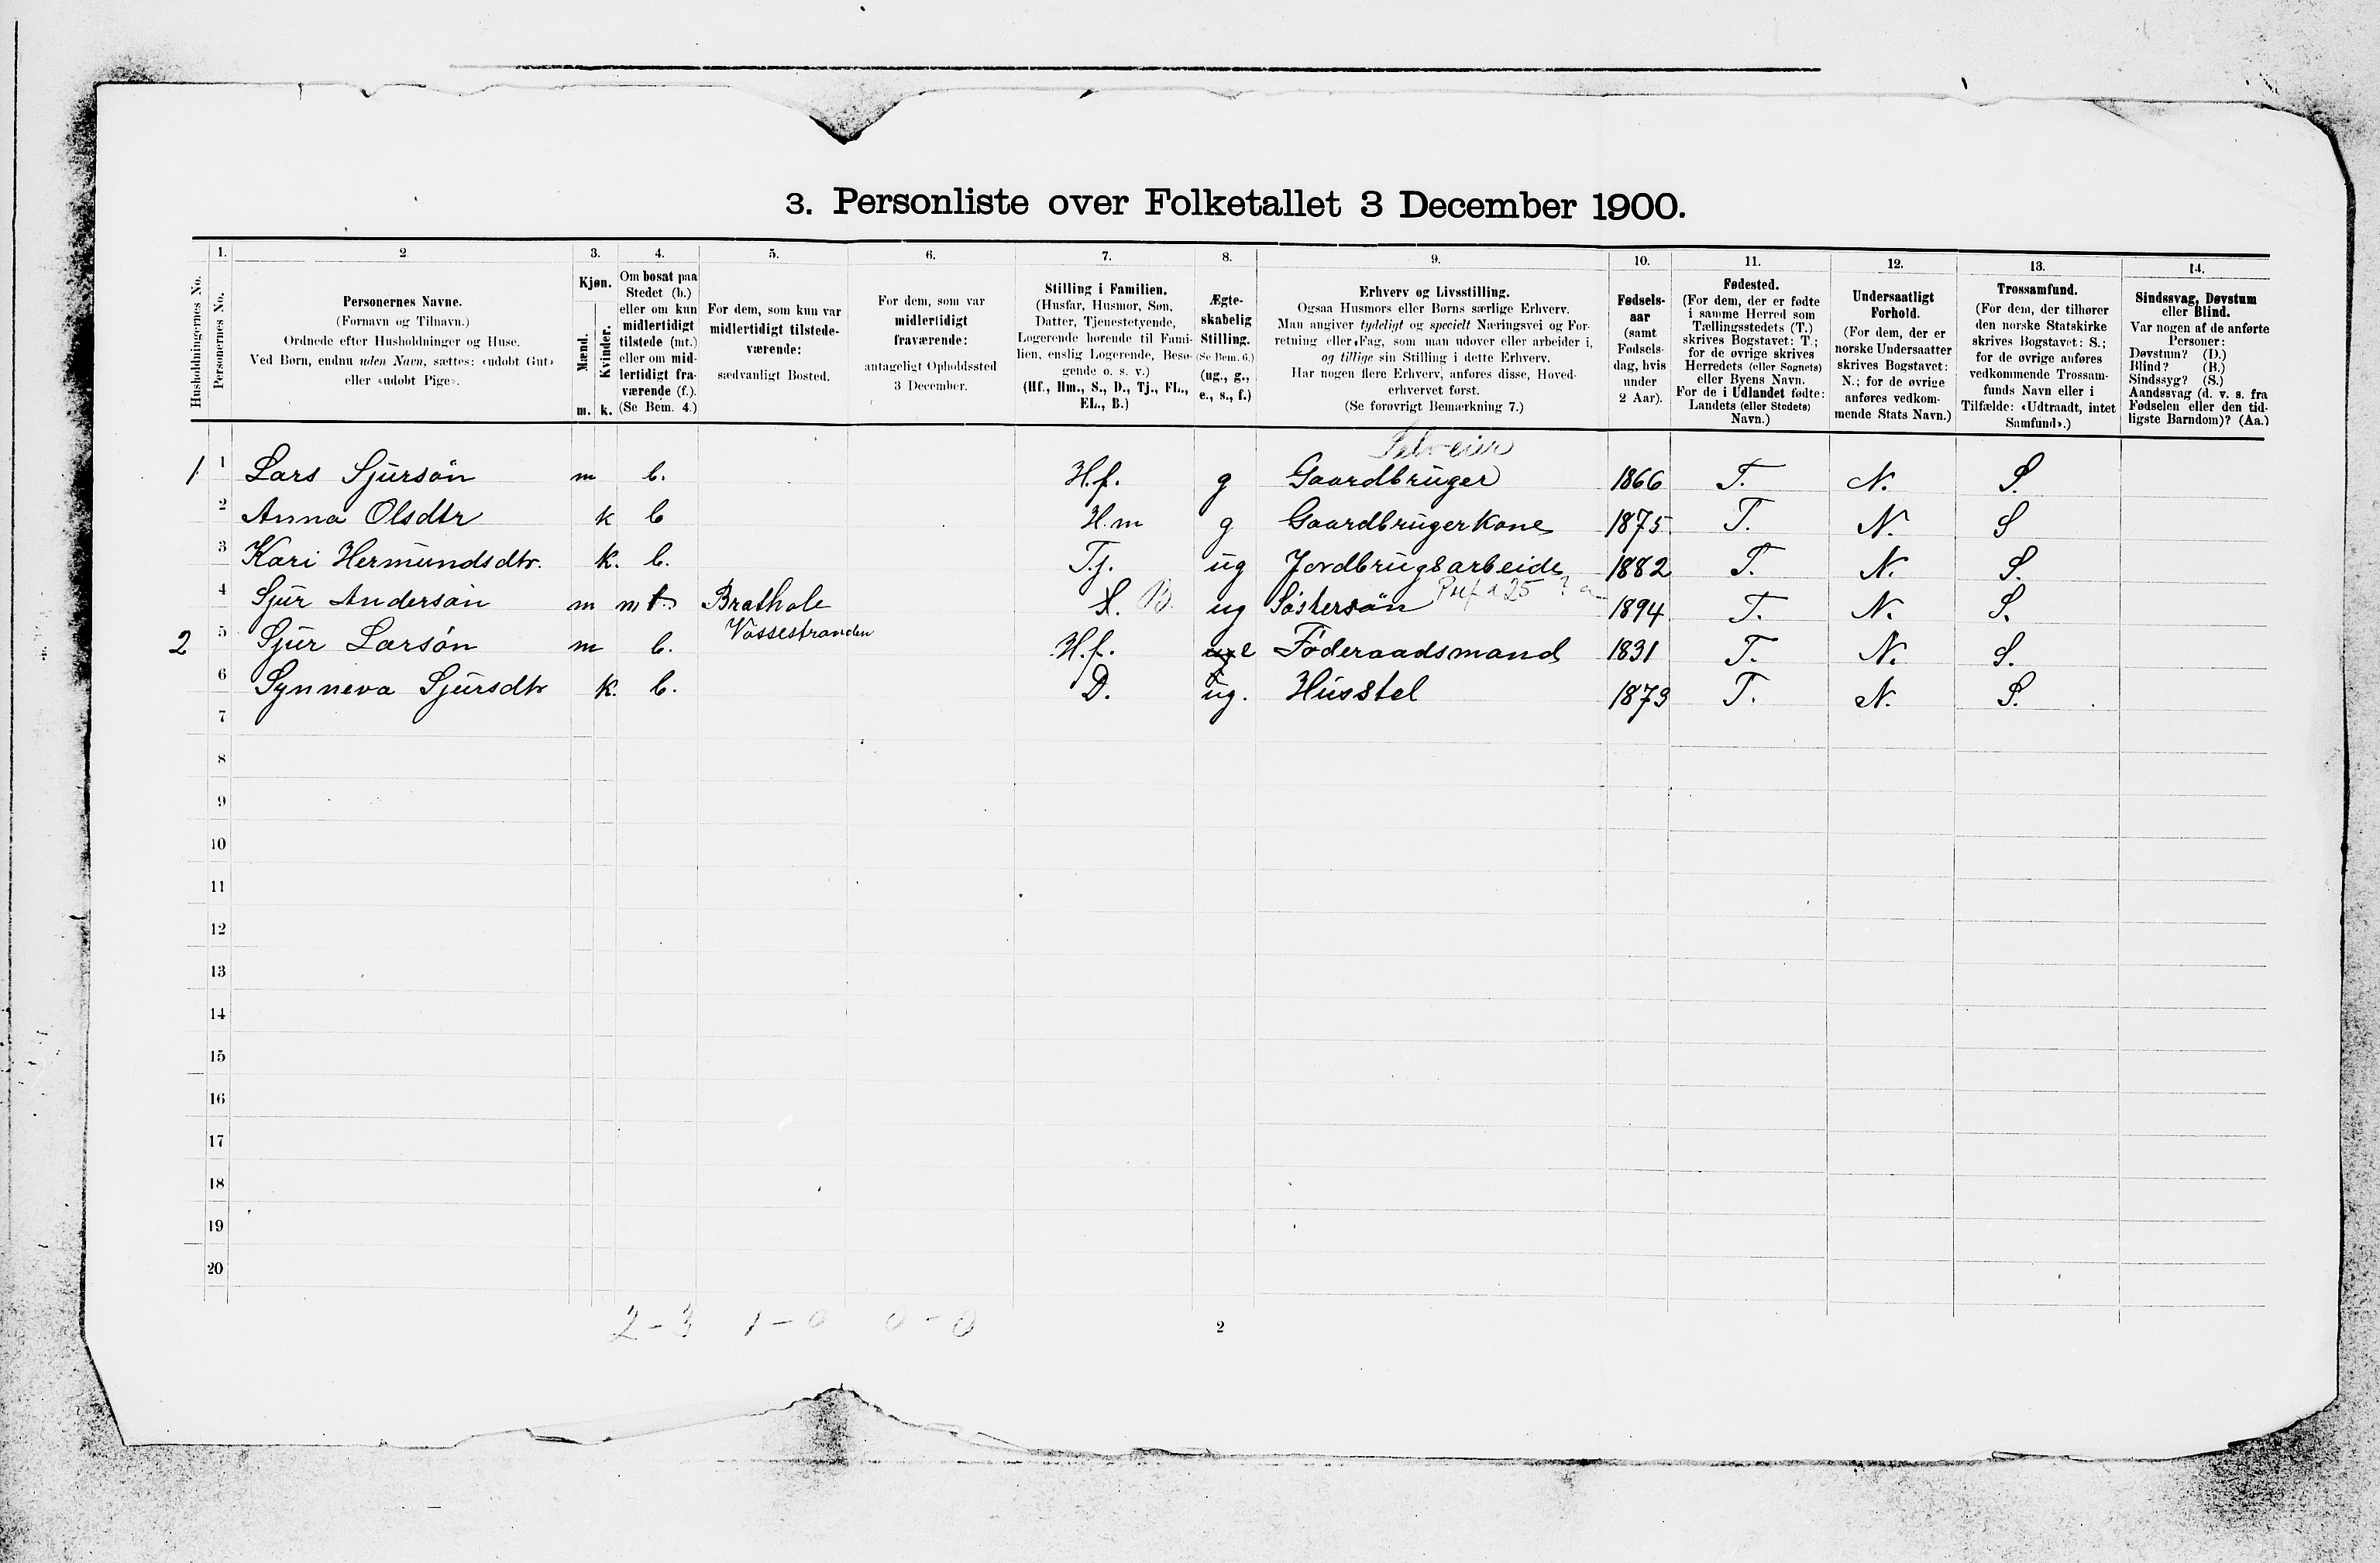 3. Personliste over Folketallet 3 December 1900.
Husholdningernes No.
1. Personernes No.
2. Personernes Navne.
(Fornavn og Tilnavn.)
Ordnede efter Husholdninger og Huse.
Ved Børn, endnu uden Navn, sættes: «udøbt Gut»
eller «udøbt Pige».
3. Kjøn.
Mænd. Kvinder.
m. k.
4. Om bosat paa
Stedet (b.)
eller om kun
midlertidigt
tilstede (mt.)
eller om mid-
lertidigt fra-
værende (f.).
(Se Bem. 4.)
5. For dem, som kun var
midlertidigt tilstede-
værende:
sædvanligt Bosted.
6. For dem, som var
midlertidigt
fraværende:
antageligt Opholdssted
3 December.
7. Stilling i Familien.
(Husfar, Husmor, Søn,
Datter, Tjenestetyende,
Logerende hørende til Fami-
lien, enslig Logerende, Besø-
gende o. s. v.)
(Hf., Hm., S., D., Tj., FL.,
EL., B.)
8. Ægte-
skabelig
Stilling.
(Se Bem. 6.)
(ug., g.,
e., s., f.)
9. Erhverv og Livsstilling.
Ogsaa Husmors eller Børns særlige Erhverv.
Man angiver tydeligt og specielt Næringsvei og For-
retning eller Fag, som man udøver eller arbeider i,
og tillige sin Stilling i dette Erhverv.
Har nogen flere Erhverv, anføres disse, Hoved-
erhvervet først.
(Se forøvrigt Bemærkning 7.)
10. Fødsels-
aar
(samt
Fødsels-
dag, hvis
under
2 Aar).
11. Fødested.
(For dem, der er fødte
i samme Herred som
Tællingsstedets (T.)
skrives Bogstavet: T.;
for de øvrige skrives
Herredets (eller Sognets)
eller Byens Navn.
For de i Udlandet fødte:
Landets (eller Stedets)
Navn.)
12. Undersaatligt
Forhold.
(For dem, der er
norske Undersaatter
skrives Bogstavet:
N.; for de øvrige
anføres vedkom-
mende Stats Navn.)
13. Trossamfund.
(For dem, der tilhører
den norske Statskirke
skrives Bogstavet: S.;
for de øvrige anføres
vedkommende Trossam-
funds Navn eller i
Tilfælde: «Udtraadt, intet
Samfund».)
14. Sindssvag, Døvstum
eller Blind.
Var nogen af de anførte
Personer:
Døvstum? (D.)
Blind? (B.)
Sindssyg? (S.)
Aandssvag (d. v. s. fra
Fødselen eller den tid-
ligste Barndom)? (Aa.)
Selveier
1 1 Lars Sjursøn m b. H.f. g Gaardbruger 1866 T. N. S.
2 Anna Olsdtr k b H.m g Gaardbrugerkone 1875 T. N. S
3 Kari Hermundsdtr. k. b. Tj. ug Jordbrugsarbeide 1882 T. N. S.
4 Sjur Andersøn m mt. Brathole S. B. ug Søstersøn 1894 T. N. S.
Vossestranden
2 5 Sjur Larsøn m b. H.f. ug e Føderaadsmand 1831 T. N. S.
6 Synneva Sjursdtr k. b. D. ug. Husstel 1873 T. N. S.
7
8
9
10
11
12
13
14
15
16
17
18
19
20
2-3 1-0 0-0
2